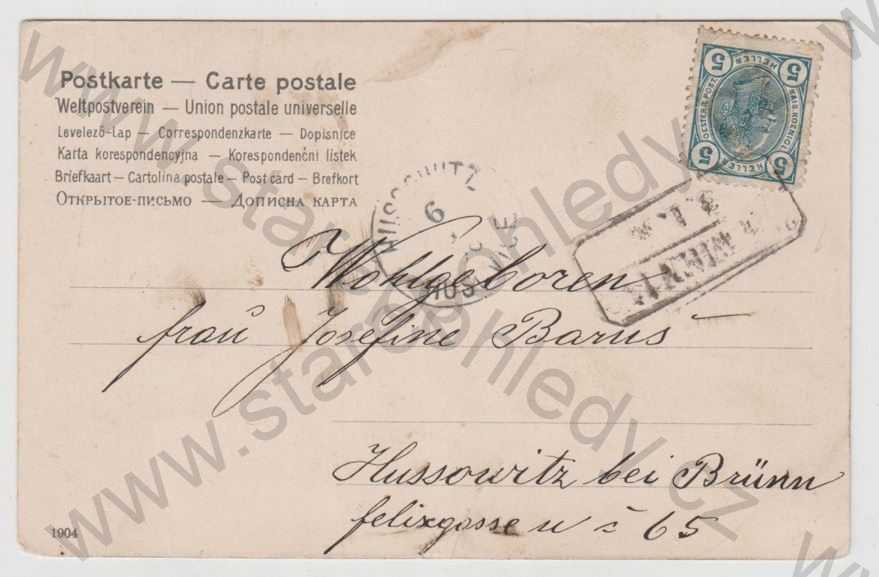 Postkarte — Carte postale
Weltpostverein — Union postale universelle
Levelező-Lap — Correspondenzkarte — Dopisnice
Karta korespondencyjna — Korespondenční lístek
Briefkaart — Cartolina postale — Post card — Brefkort
Открытое-письмо — Дописна карта
5 HELLER 5
OESTERR. POST.
KAIS. KOENIGL.
5 HELLER 5
HUSSOWITZ
6
Wohlgeboren
frau Josefine Barus
Hussowitz bei Brünn
felixgasse u č 65
1904
www.starepohledy.cz